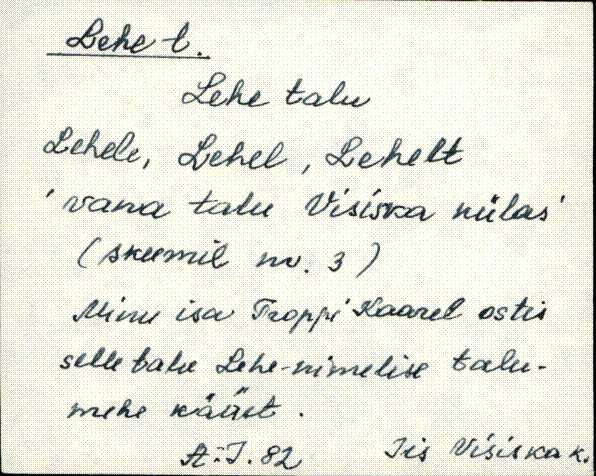 Lehe t.
Lehe talu
Lehele, Lehel, Lehelt
'vana talu Visiska külas'
(skeemil nr. 3)
Minu isa Troppi Kaarel ostis
selle talu Lehe-nimelise talu-
mehe käüst.
A.J. 82 Iis Visiska k.